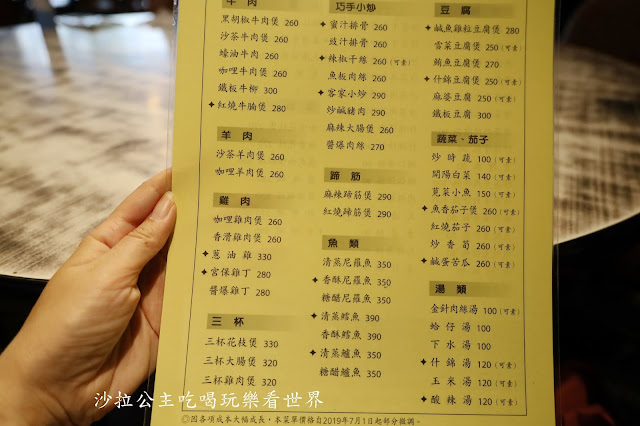 牛肉
黑胡椒牛肉煲 260
沙茶牛肉煲 260
蠔油牛肉 260
咖哩牛肉煲 260
鐵板牛柳 300
✦紅燒牛腩煲 280
羊肉
沙茶羊肉煲 260
咖哩羊肉煲 260
雞肉
咖哩雞肉煲 260
香滑雞肉煲 260
✦蔥油雞 330
✦宮保雞丁 280
醬爆雞丁 280
三杯
三杯花枝煲 330
三杯大腸煲 320
三杯雞肉煲 320
巧手小炒
✦蜜汁排骨 260
豉汁排骨 260
✦辣椒干絲 260(可素)
魚板肉絲 260
✦客家小炒 290
炒鹹豬肉 290
麻辣大腸煲 260
醬爆肉絲 270
蹄筋
麻辣蹄筋煲 290
紅燒蹄筋煲 290
魚類
清蒸尼羅魚 350
✦香酥尼羅魚 350
糖醋尼羅魚 350
✦清蒸鱈魚 390
香酥鱈魚 390
✦清蒸鱸魚 350
糖醋鱸魚 350
豆腐
✦鹹魚雞粒豆腐煲 280
雪菜豆腐煲 250(可素)
鮪魚豆腐煲 270
✦什錦豆腐煲 250(可素)
麻婆豆腐 250(可素)
鐵板豆腐 300
蔬菜、茄子
炒時蔬 100(可素)
開陽白菜 140(可素)
莧菜小魚 150(可素)
✦魚香茄子煲 260(可素)
紅燒茄子 260(可素)
炒香菊 260(可素)
✦鹹蛋苦瓜 260(可素)
湯類
金針肉絲湯 100(可素)
蛤仔湯 100
下水湯 100
✦什錦湯 120(可素)
玉米湯 120(可素)
✦酸辣湯 120(可素)
◎因各項成本大幅成長,本菜單價格自2019年7月1日起部分微調。
沙拉公主吃喝玩樂看世界